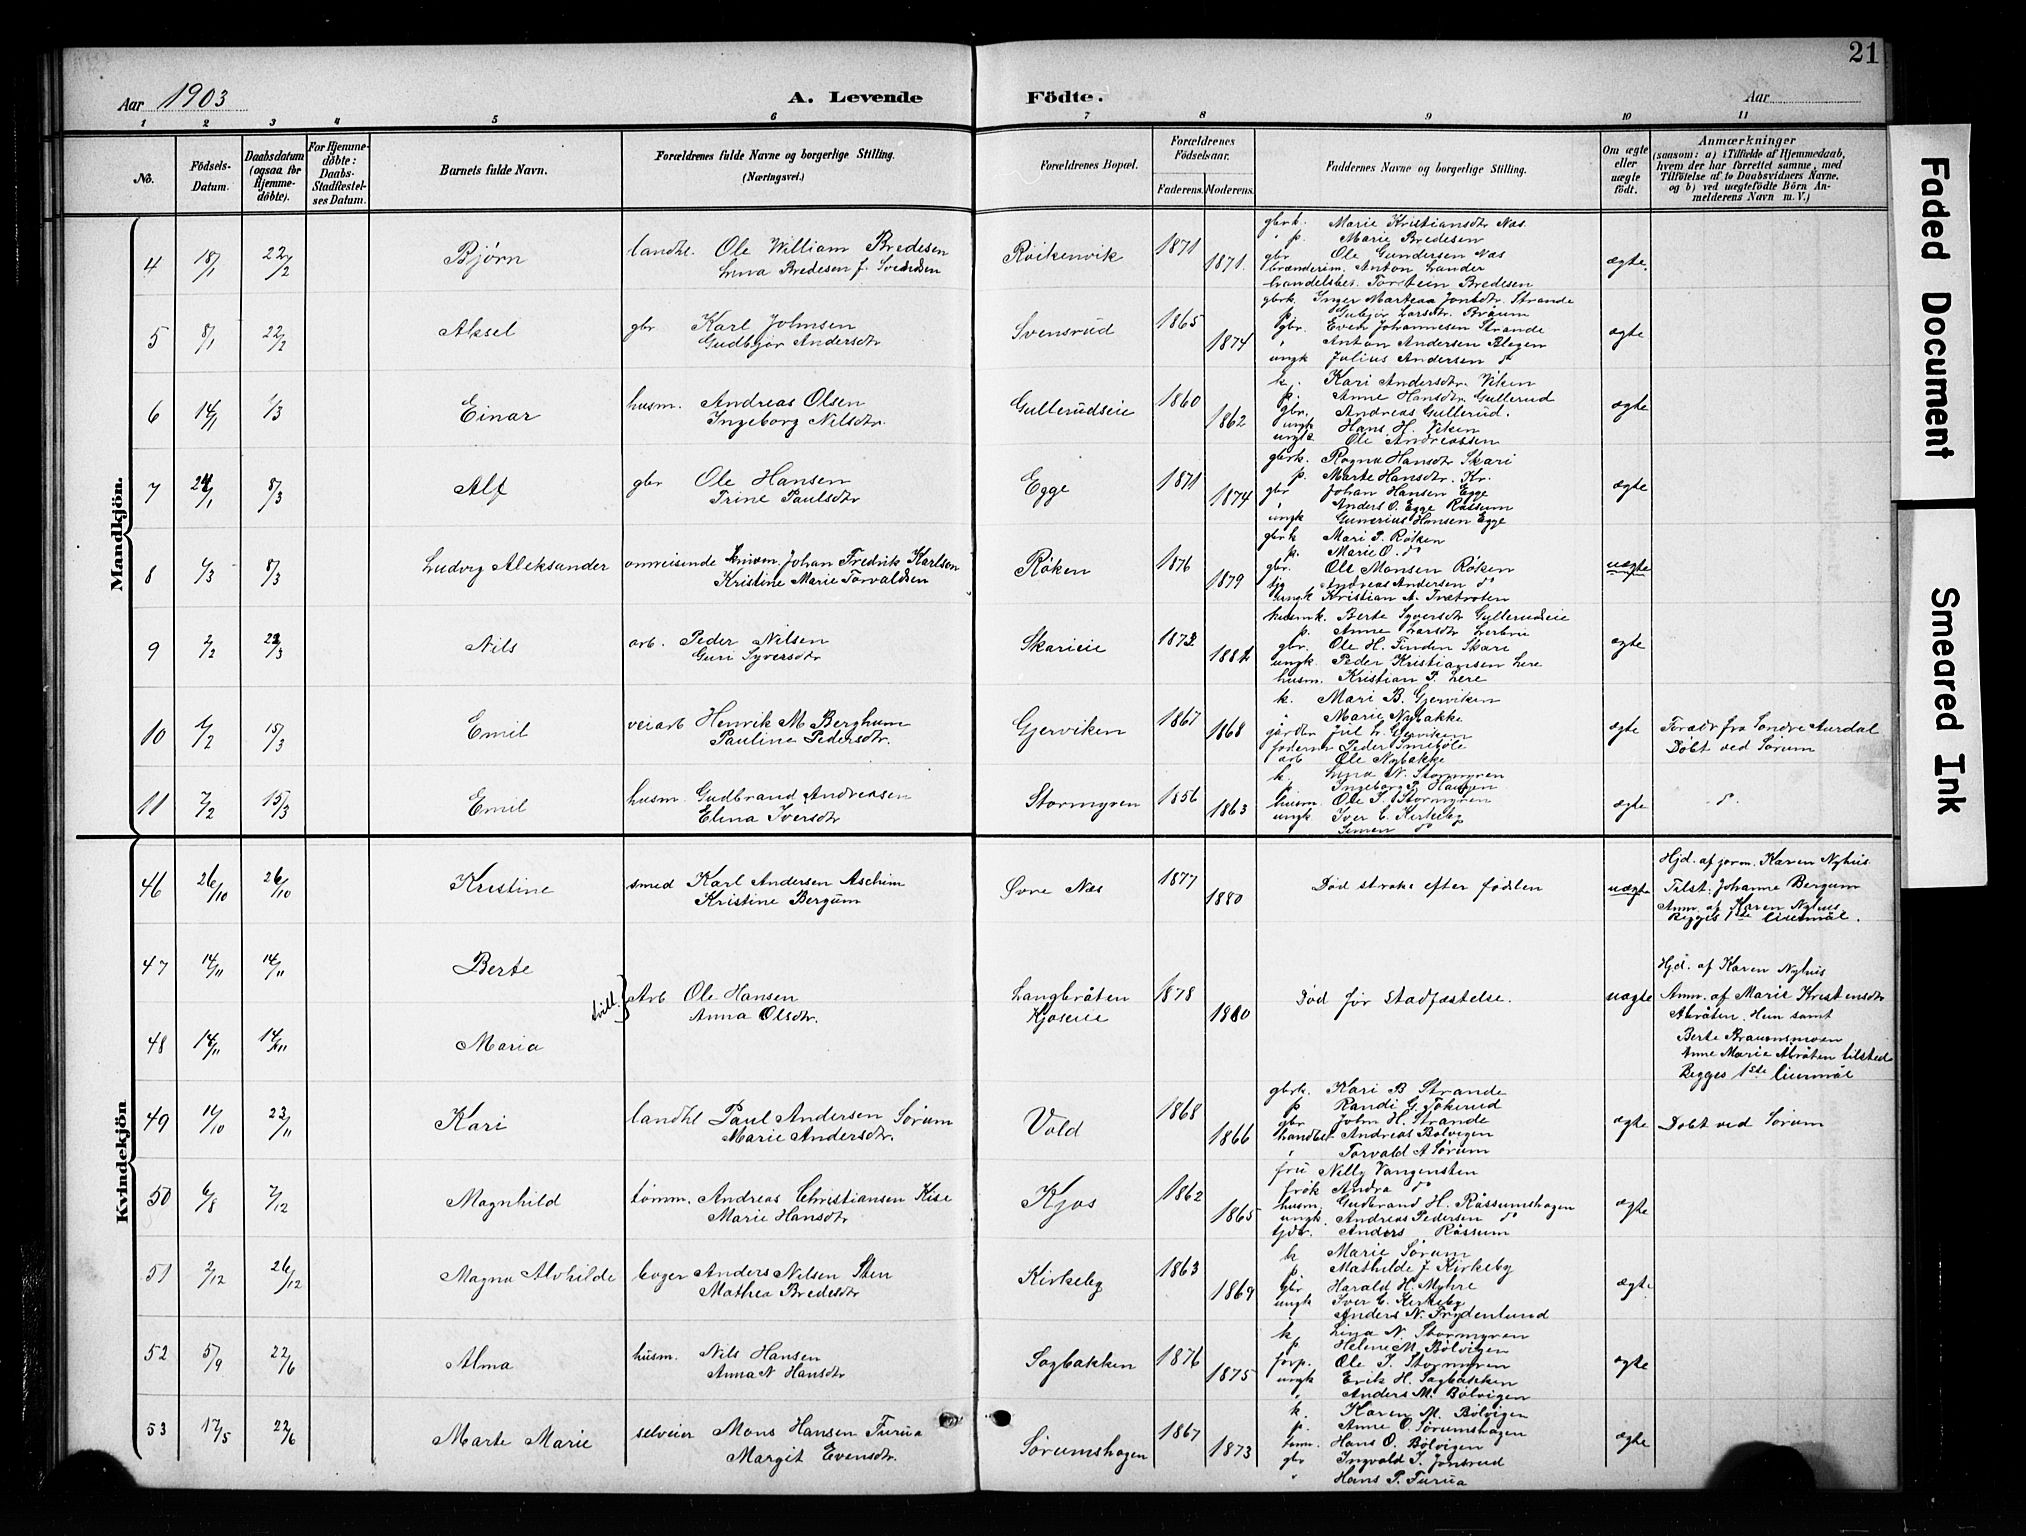 21
Aar 1903
A. Levende Födte.
Aar
1 2 3 4 5 6 7 8 9 10 11
No.
Födsels-Datum.
Daabsdatum (ogsaa for Hjemme-döbte).
For Hjemme-döbte: Daabs-Stadfæstel-ses Datum.
Barnets fulde Navn.
Forældrenes fulde Navne og borgerlige Stilling. (Næringsvei.)
Forældrenes Bopæl.
Forældrenes Födselsaar.
Faderens. Moderens.
Faddernes Navne og borgerlige Stilling.
Om ægte eller uægte födt.
Anmærkninger
(saasom: a) i Tilfælde af Hjemmedaab, hvem der har forrettet samme, med Tilföielse af to Daabsvidners Navne. og b) ved uægtefödte Börn An-melderens Navn m. V.)
Mandkjön.
4 18/1 22/2 Bjørn landhl. Ole William Bredesen
Lina Bredesen f. Svendsen
Røikenvik 1871 1871. ægte.
gbrk. Marie Kristiansdtr Næs
" p. Marie Bredesen
gbr Ole Gundersen Næs
brænderim. Anton Lander
handelsbet. Torstein Bredesen
5 8/1 22/2 Aksel gbr Karl Johnsen
Gudbjør Andersdtr
Svensrud 1865 1874 ægte
gbrk. Inger Martea Jonsdtr. Strande
p. Gubjør Larsdtr. Braum
gbr. Even Johannesen Strande
" Anton Andersen Blegen
ungk Julius Andersen do
6 14/1 1/3 Einar husm. Andreas Olsen
Ingeborg Nilsdtr.
Gullerudseie 1860 1862 ægte
k. Kari Andersdtr. Viken
p. Anne Hansdtr. Gullerud
gbr. Andreas Gullerud.
ungk Hans H. Viken
ungk Ole Andreassen
7 24/1 8/3 Alf gbr Ole Hansen
Trine Paulsdtr
Egge 1871 1874 ægte
gbrk. Ragna Hansdtr Skari
p. Marte Hansdtr. Kr.
gbr Johan Hansen Egge
" Anders O. Egge Råssum
ungk Gunerius Hansen Egge
8 4/3 8/3 Ludvig Aleksander omreisende Johan Fredrik Karlson
Kristine Marie Torvaldsen
Røken 1876 1879 uægte
gbrk Mari P. Røken
p. Marie O. do
gbr. Ole Monsen Røken
tjg Andreas Andersen do
ungk Kristian A. Trætroten
9 2/2 22/3 Nils arb. Peder Nilsen
Guri Syversdtr
Skarieie 1872 1882 ægte
husmk. Berte Syversdtr Gullerudseie
p. Anne Larsdtr Lerbru
gbr. Ole H. Finden Skari
ungk. Peder Kristiansen Lere
husm. Kristian P. Lere
10 4/2 15/3 Emil veiarb Henrik M. Berghum
Pauline Pedersdtr.
Gjerviken 1867 1868 ægte
k. Mari B. Gjerviken
Marie Nybakke
gårdbr Jul L. Gjerviken
Peder Smebøle
arb Ole Nybakke
Forældr fra Søndre Aurdal
Døbt ved Sørum
11 7/2 15/3 Emil husm. Gudbrand Andreasen
Elina Iversdtr
Stormyren 1856 1863 ægte do.
k. Lina N. Stormyren
p. Ingeborg P. Haugen
husm Ole I. Stormyren
ungk Iver C. Kirkeby
Simen do
Kvindekjön
46 26/10 26/10 Kristine smed Karl Andersen Aschim
Kristine Bergum
Øvre Næs 1877 1880 Død straks efter fødslen uægte
Hjd. af jorm. Karen Nyhus
Tilst: Johanne Bergum
Anm. af Karen Nyhus
Begges 1ste leiermål.
47 14/11 14/11 Berte
tvill. } Arb Ole Hansen
Anna Olsdtr.
Langbråten
Kjoseie 1878 1880 Død før stadfæstelse. uægte
48 14/11 14/11 Maria
Hjd. af Karen Nyhus
Anm. af Marie Kristensdtr
Abråten. Hun samt
Berte Braunsmoen
Anne Marie Abråten tilstede
Begges 1ste leiermål
49 14/10 23/11 Kari landhl Paul Andersen Sørum
Marie Andersdtr.
Vold 1868 1866 ægte Døbt ved Sørum
gbrk. Kari B. Strande
p Randi G. Jökerud
gbr John H. Strande
handbet Andreas Bølvigen
" Torvald A Sørum
50 6/8 7/12 Magnhild tømm. Andreas Christiansen Kise
Marie Hansdtr
Kjos 1862 1865 ægte
fru Nilly Vangensten
frøk Andra do
husm. Gudbrand H. Råssumshagen
ungk. Andreas Pedersen do
tjdr. Anders Råssum
51 2/12 26/12 Magna Alvhilde bager Anders Nilsen Sten
Mathea Bredesdtr
Kirkeby 1863 1869 ægte
k Marie Sørum
p Mathilde J Kirkeby
gbr Harald H. Myhre
ungk Iver C. Kirkeby
" Anders N. Frydenlund
52 5/9 22/6 Alma husm. Nils Hansen
Anna N Hansdtr
Sagbakken 1876 1875 ægte
k Lina N. Stormyren
p Helene M. Bølvigen
forp. Ole I. Stormyren
ungk Erik H. Sagbakken
" Anders M. Bølvigen
53 17/5 22/6 Marte Marie selveier Mons Hansen Furua
Margit Evensdtr.
Sørumshagen 1867 1873 ægte
k. Karen M. Bølvigen
p. Anne O. Sørumshagen
Hans O. Bølvigen
gbr Ingvald I. Jonsrud
" Hans P. Furua
Faded Document
Smeared Ink